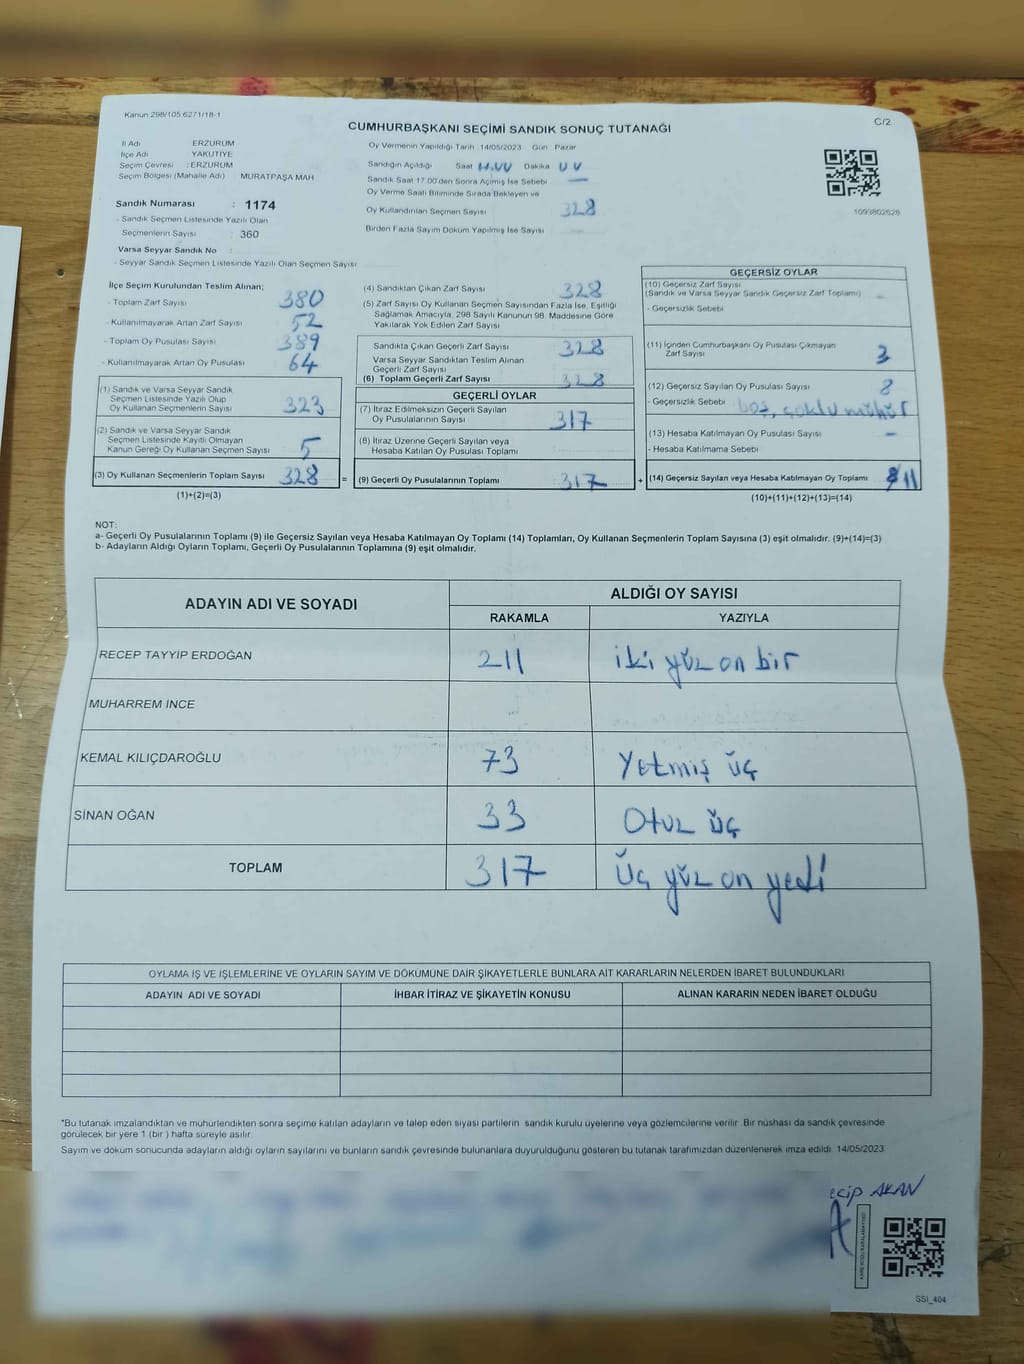 Kanun 298/105,6271/18-1
C/2
CUMHURBAŞKANI SEÇİMİ SANDIK SONUÇ TUTANAĞI
İl Adı ERZURUM
İlçe Adı YAKUTİYE
Seçim Çevresi : ERZURUM
Seçim Bölgesi (Mahalle Adı) MURATPAŞA MAH
Sandık Numarası : 1174
- Sandık Seçmen Listesinde Yazılı Olan
Seçmenlerin Sayısı : 360
Varsa Seyyar Sandık No :
- Seyyar Sandık Seçmen Listesinde Yazılı Olan Seçmen Sayısı
Oy Vermenin Yapıldığı Tarih 14/05/2023 Gün Pazar
Sandığın Açıldığı Saat Dakika
Sandık Saat 17.00'den Sonra Açılmış İse Sebebi —
Oy Verme Saati Bitiminde Sırada Bekleyen ve
Oy Kullandırılan Seçmen Sayısı 328
Birden Fazla Sayım Döküm Yapılmış İse Sayısı
1093802628
İlçe Seçim Kurulundan Teslim Alınan;
- Toplam Zarf Sayısı 380
- Kullanılmayarak Artan Zarf Sayısı 52
- Toplam Oy Pusulası Sayısı 389
- Kullanılmayarak Artan Oy Pusulası 64
(1) Sandık ve Varsa Seyyar Sandık
Seçmen Listesinde Yazılı Olup
Oy Kullanan Seçmenlerin Sayısı 323
(2) Sandık ve Varsa Seyyar Sandık
Seçmen Listesinde Kayıtlı Olmayan
Kanun Gereği Oy Kullanan Seçmen Sayısı 5
(3) Oy Kullanan Seçmenlerin Toplam Sayısı 328
(1)+(2)=(3)
(4) Sandıktan Çıkan Zarf Sayısı 328
(5) Zarf Sayısı Oy Kullanan Seçmen Sayısından Fazla İse, Eşitliği
Sağlamak Amacıyla, 298 Sayılı Kanunun 98. Maddesine Göre
Yakılarak Yok Edilen Zarf Sayısı
Sandıkta Çıkan Geçerli Zarf Sayısı 328
Varsa Seyyar Sandıktan Teslim Alınan
Geçerli Zarf Sayısı
(6) Toplam Geçerli Zarf Sayısı 328
GEÇERLİ OYLAR
(7) İtiraz Edilmeksizin Geçerli Sayılan
Oy Pusulalarının Sayısı 317
(8) İtiraz Üzerine Geçerli Sayılan veya
Hesaba Katılan Oy Pusulası Toplamı
= (9) Geçerli Oy Pusulalarının Toplamı 317
GEÇERSİZ OYLAR
(10) Geçersiz Zarf Sayısı
(Sandık ve Varsa Seyyar Sandık Geçersiz Zarf Toplamı) —
- Geçersizlik Sebebi
(11) İçinden Cumhurbaşkanı Oy Pusulası Çıkmayan
Zarf Sayısı 3
(12) Geçersiz Sayılan Oy Pusulası Sayısı 8
- Geçersizlik Sebebi boş, çoklu mühür
(13) Hesaba Katılmayan Oy Pusulası Sayısı —
- Hesaba Katılmama Sebebi
+ (14) Geçersiz Sayılan veya Hesaba Katılmayan Oy Toplamı 11
(10)+(11)+(12)+(13)=(14)
NOT:
a- Geçerli Oy Pusulalarının Toplamı (9) ile Geçersiz Sayılan veya Hesaba Katılmayan Oy Toplamı (14) Toplamları, Oy Kullanan Seçmenlerin Toplam Sayısına (3) eşit olmalıdır. (9)+(14)=(3)
b- Adayların Aldığı Oyların Toplamı, Geçerli Oy Pusulalarının Toplamına (9) eşit olmalıdır.
ADAYIN ADI VE SOYADI
ALDIĞI OY SAYISI
RAKAMLA YAZIYLA
RECEP TAYYİP ERDOĞAN 211 iki yüz on bir
MUHARREM İNCE
KEMAL KILIÇDAROĞLU 73 Yetmiş üç
SİNAN OĞAN 33 Otuz üç
TOPLAM 317 Üç yüz on yedi
OYLAMA İŞ VE İŞLEMLERİNE VE OYLARIN SAYIM VE DÖKÜMÜNE DAİR ŞİKAYETLERLE BUNLARA AİT KARARLARIN NELERDEN İBARET BULUNDUKLARI
ADAYIN ADI VE SOYADI İHBAR İTİRAZ VE ŞİKAYETİN KONUSU ALINAN KARARIN NEDEN İBARET OLDUĞU
*Bu tutanak imzalandıktan ve mühürlendikten sonra seçime katılan adayların ve talep eden siyasi partilerin sandık kurulu üyelerine veya gözlemcilerine verilir. Bir nüshası da sandık çevresinde
görülecek bir yere 1 (bir ) hafta süreyle asılır.
Sayım ve döküm sonucunda adayların aldığı oyların sayılarını ve bunların sandık çevresinde bulunanlara duyurulduğunu gösteren bu tutanak tarafımızdan düzenlenerek imza edildi. 14/05/2023
ecip AKAN
SSI_404